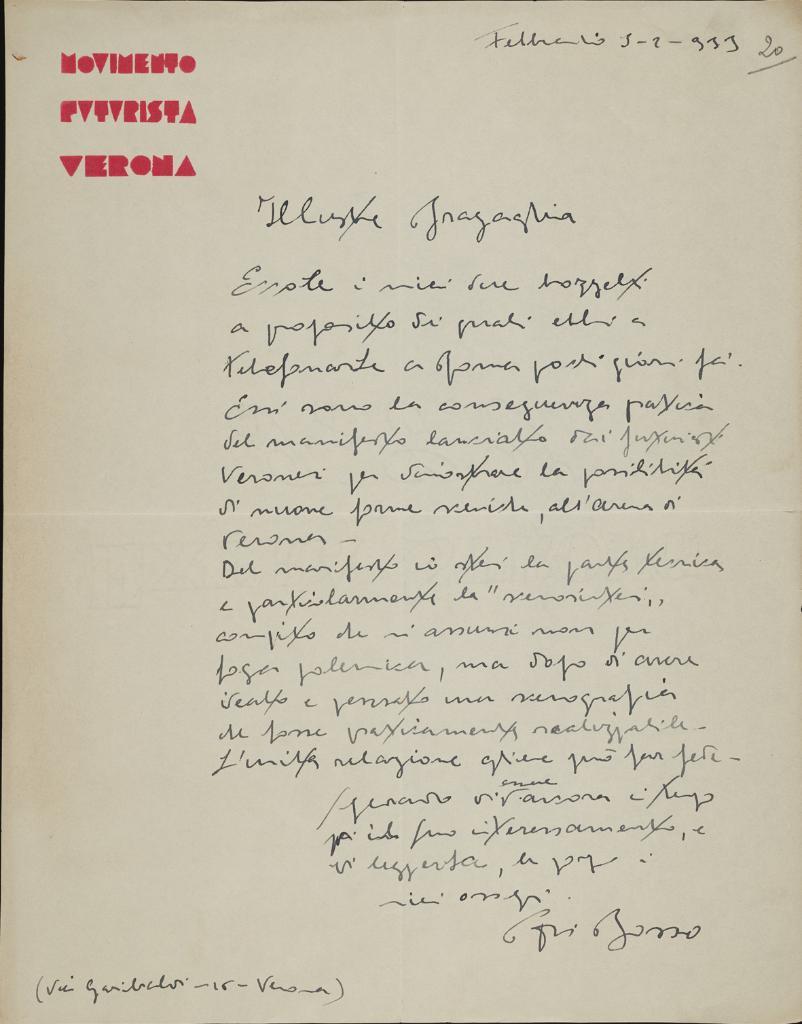 MOVIMENTO
FUTURISTA
VERONA
Febbraio 5-2-933
20
Illustre Bragaglia
Eccole i miei due bozzetti
a proposito dei quali ebbi a
telefonarle a Roma pochi giorni fa.
Essi sono la conseguenza pratica
del manifesto lanciato dai futuristi
Veronesi per dimostrare la possibilità
di nuove forme sceniche, all'arena di
Verona -
Del manifesto io stesi la parte tecnica
e particolarmente la "scenosintesi"
compito che mi assunsi non per
foga polemica, ma dopo di avere
ideato e pensato una scenografia
che fosse praticamente realizzabile -
L'unita relazione gliene può far fede -
Sperando di essere ancora in tempo
pel suo interessamento, e
di leggerla, le porgo i
miei ossequi.
Bosso
(Via Garibaldi - 15 - Verona)